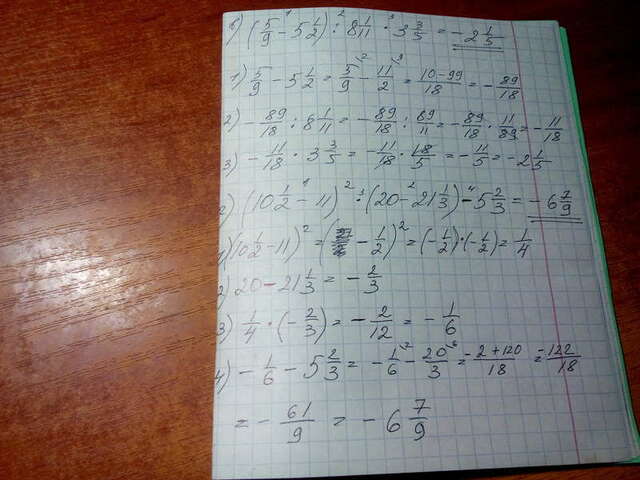 б) (5/9 - 5 1/2) : 8 1/11 · 3 3/5 = -2 1/5
1) 5/9 - 5 1/2 = 5/9 - 11/2 = 10-99/18 = -89/18
2) -89/18 : 8 1/11 = -89/18 : 89/11 = -89/18 · 11/89 = -11/18
3) -11/18 · 3 3/5 = -11/18 · 18/5 = -11/5 = -2 1/5
(10 1/2 - 11)² : (20 - 21 1/3) - 5 2/3 = -6 7/9
1) (10 1/2 - 11)² = (-1/2)² = (-1/2)·(-1/2) = 1/4
2) 20 - 21 1/3 = -2/3
3) 1/4 · (-2/3) = -2/12 = -1/6
4) -1/6 - 5 2/3 = -1/6 - 20/3 = -2+120/18 = -122/18
= -61/9 = -6 7/9